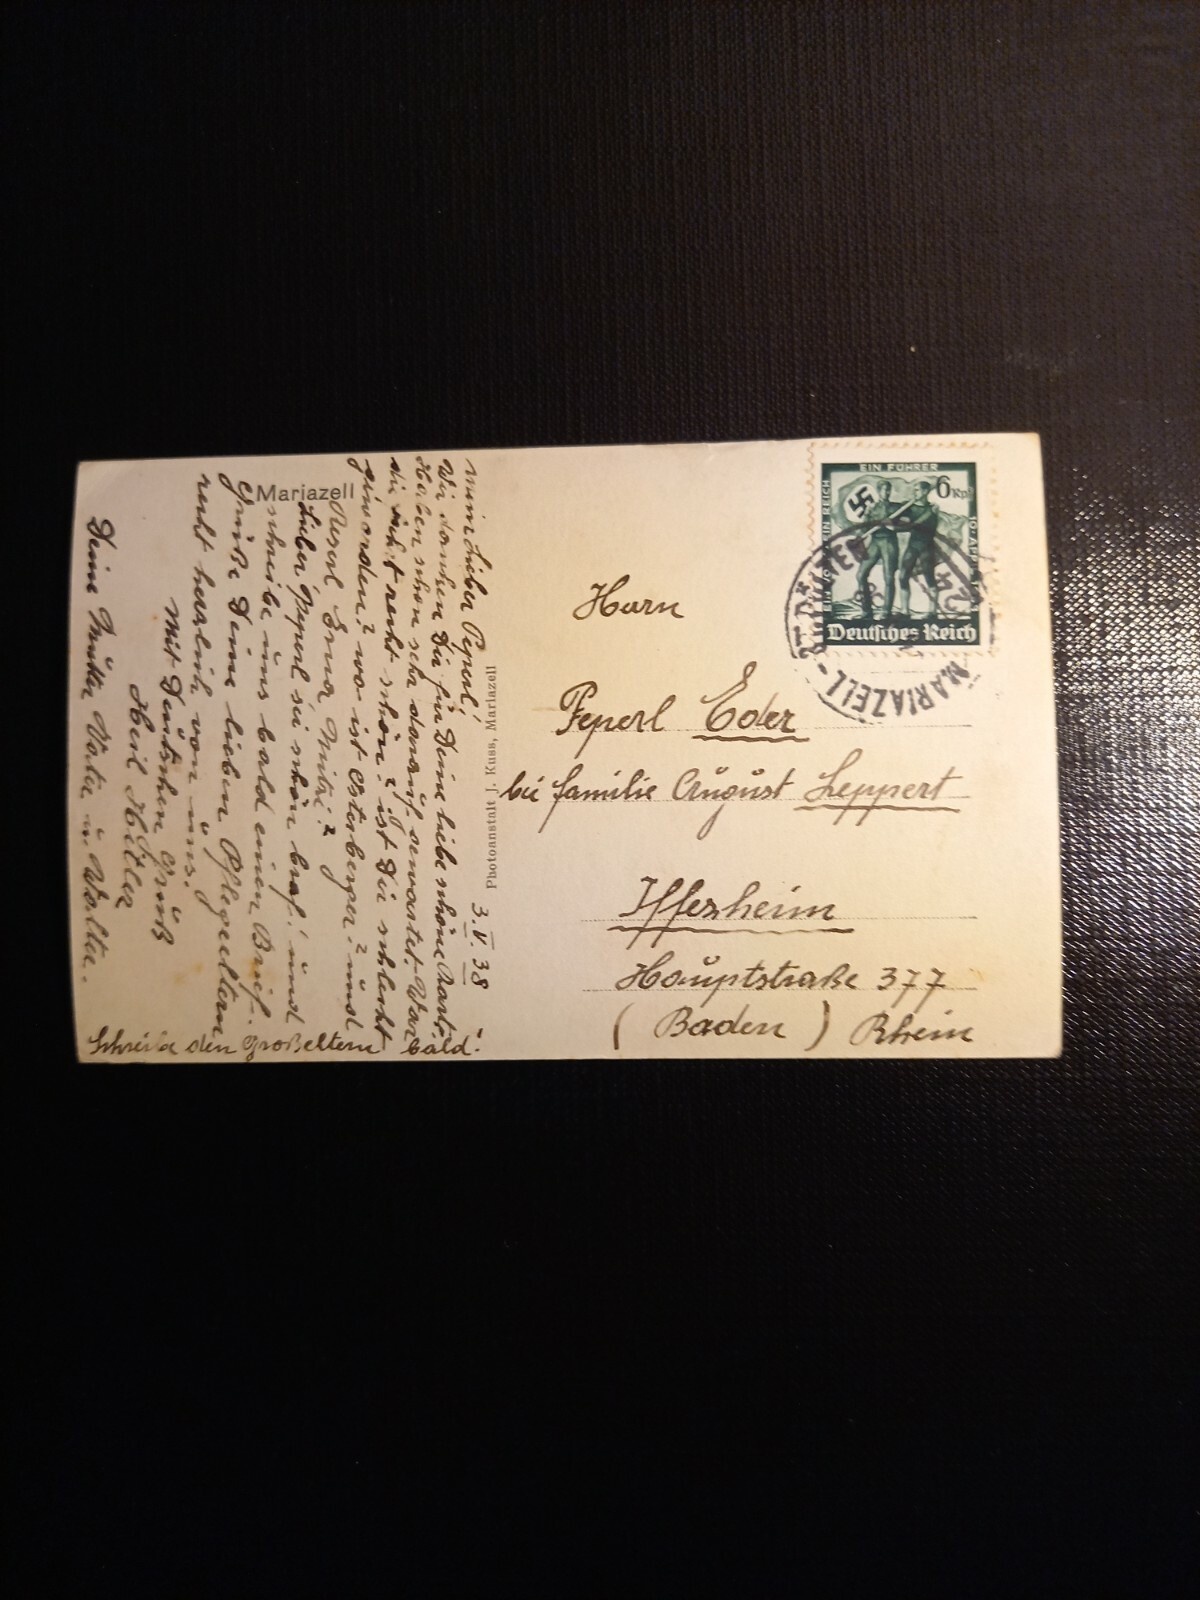 Mariazell
3. V. 38
Mein lieber Peperl!
Wir danken Dir für Deine liebe schöne Karte.
Haben schon sehr darauf gewartet. War
die recht schön? ist Dir schlecht
geworden? wo ist Osterberger? und
Reserl Erna Mitzi?
Lieber Peperl sei schön brav! und
schreibe uns bald einen Brief.
Grüße Deine lieben Pflegeeltern
recht herzlich von uns.
Mit Deutschen Gruß
Heil Hitler
Deine Mutter Vater u. Walter.
Schreibe den Großeltern bald!
Photoanstalt J. Kuss, Mariazell
EIN FÜHRER
EIN REICH
6 Rpf
Deutsches Reich
MARIAZELL
Herrn
Peperl Eder
bei Familie August Leppert
Iffezheim
Hauptstraße 377
(Baden) Rhein